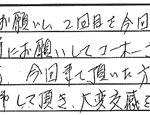 お願いし、2回目を今回
にお願いしてコーホー
今回来て頂いた方
して頂き、大変交感を